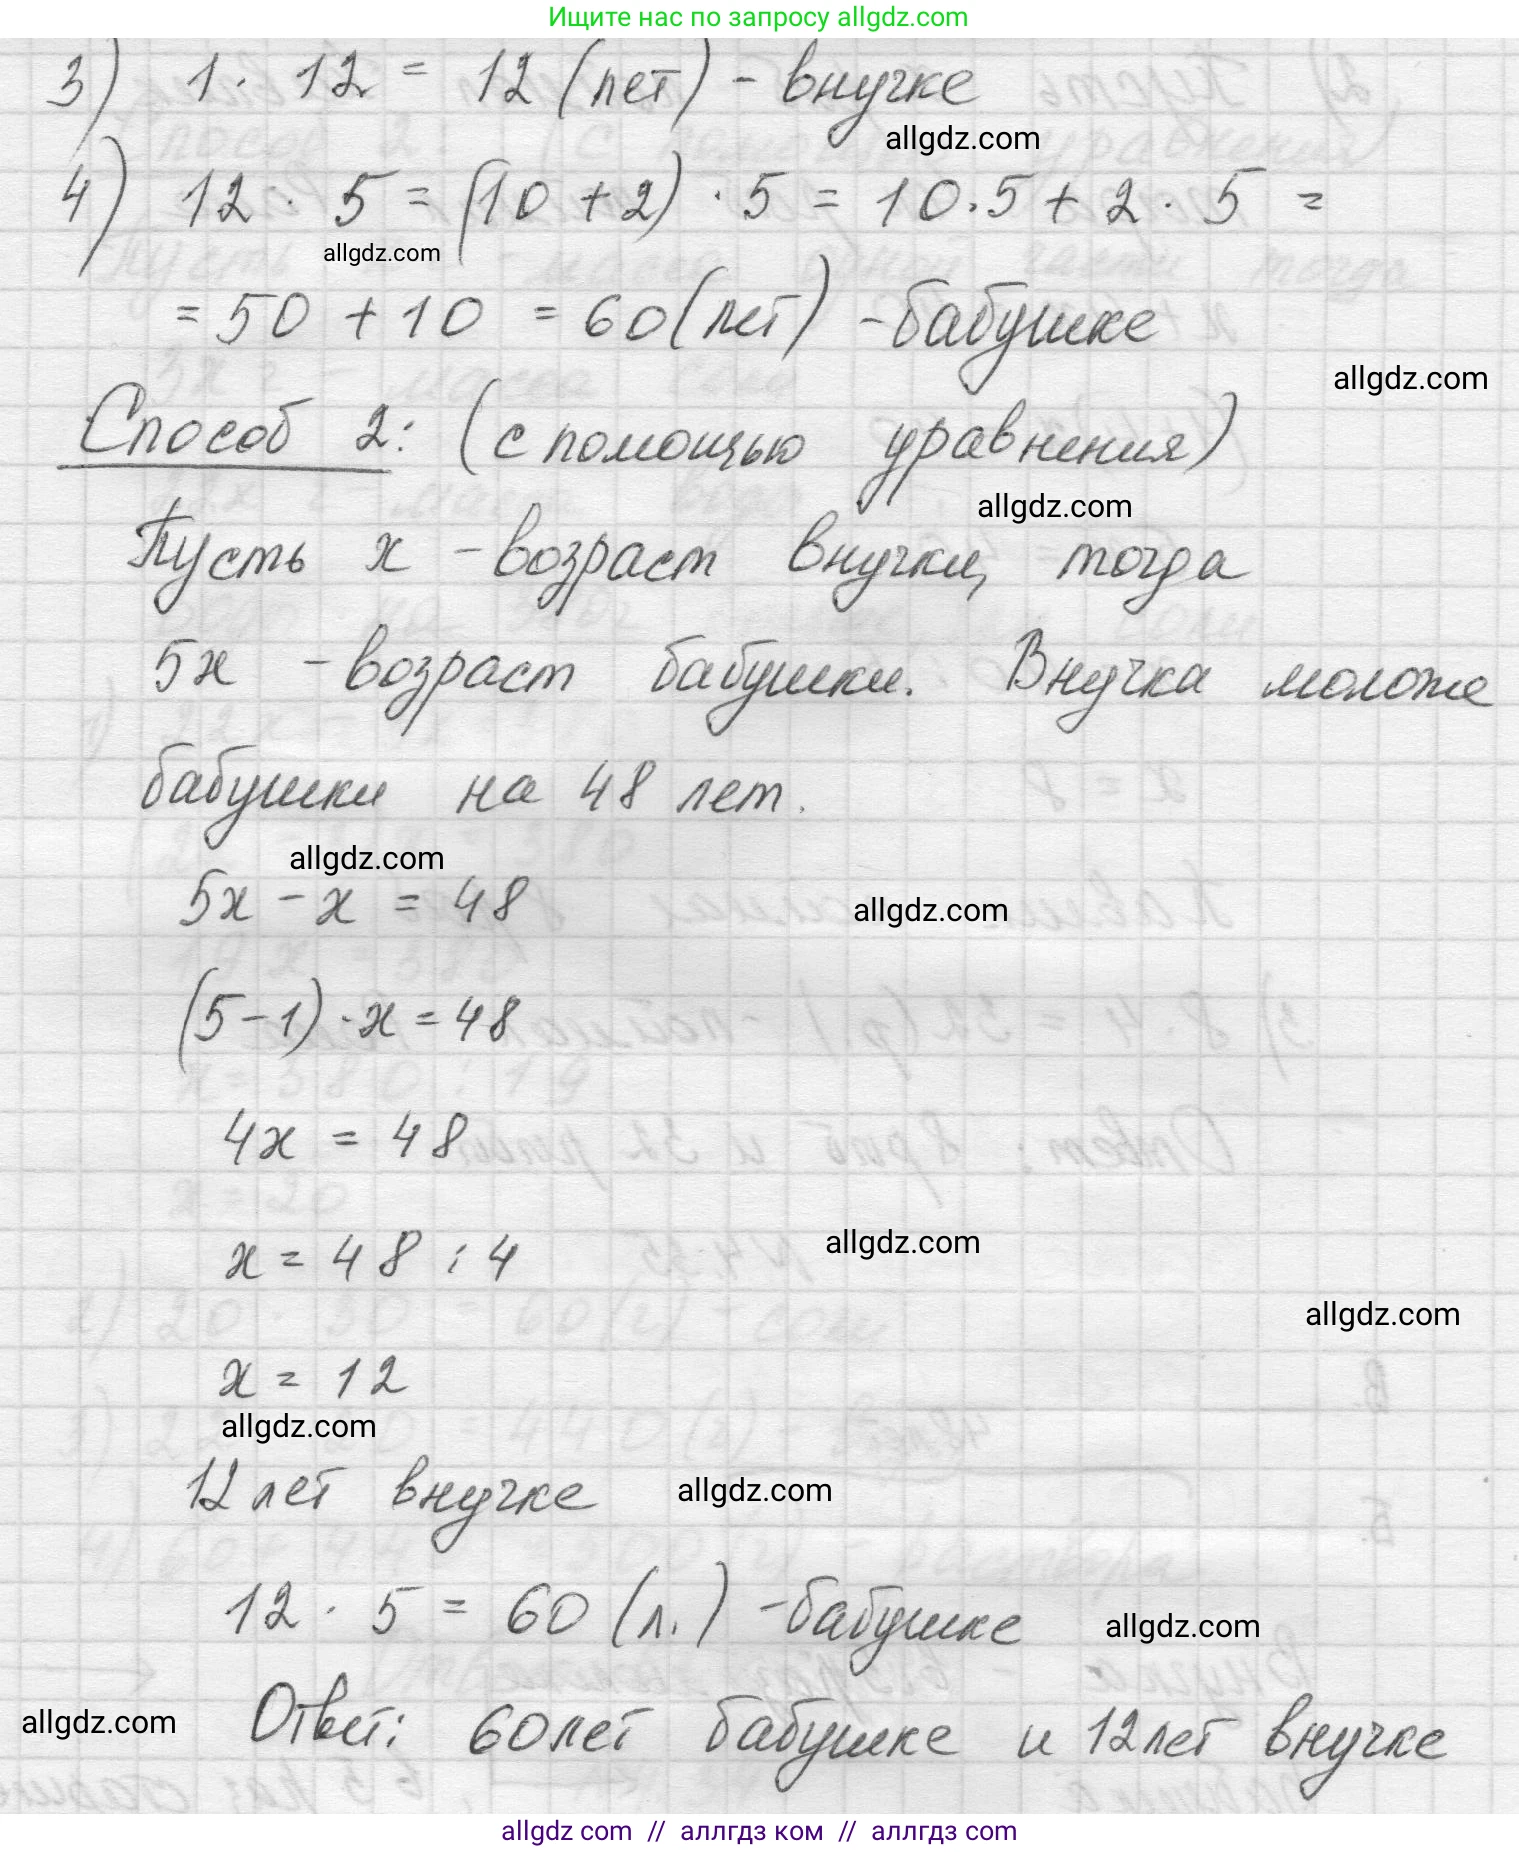 Ищите нас по запросу allgdz.com
3) 1 · 12 = 12 (лет) - внучке
allgdz.com
4) 12 · 5 = (10 + 2) · 5 = 10 · 5 + 2 · 5 =
allgdz.com
= 50 + 10 = 60 (лет) - бабушке
allgdz.com
Способ 2: (с помощью уравнения)
allgdz.com
Пусть x - возраст внучки, тогда
5x - возраст бабушки. Внучка моложе
бабушки на 48 лет.
allgdz.com
5x - x = 48
allgdz.com
(5 - 1) · x = 48
4x = 48
x = 48 : 4
allgdz.com
allgdz.com
x = 12
allgdz.com
12 лет внучке
allgdz.com
12 · 5 = 60 (л.) - бабушке
allgdz.com
allgdz.com
Ответ: 60 лет бабушке и 12 лет внучке
allgdz com // аллгдз ком // аллгдз com